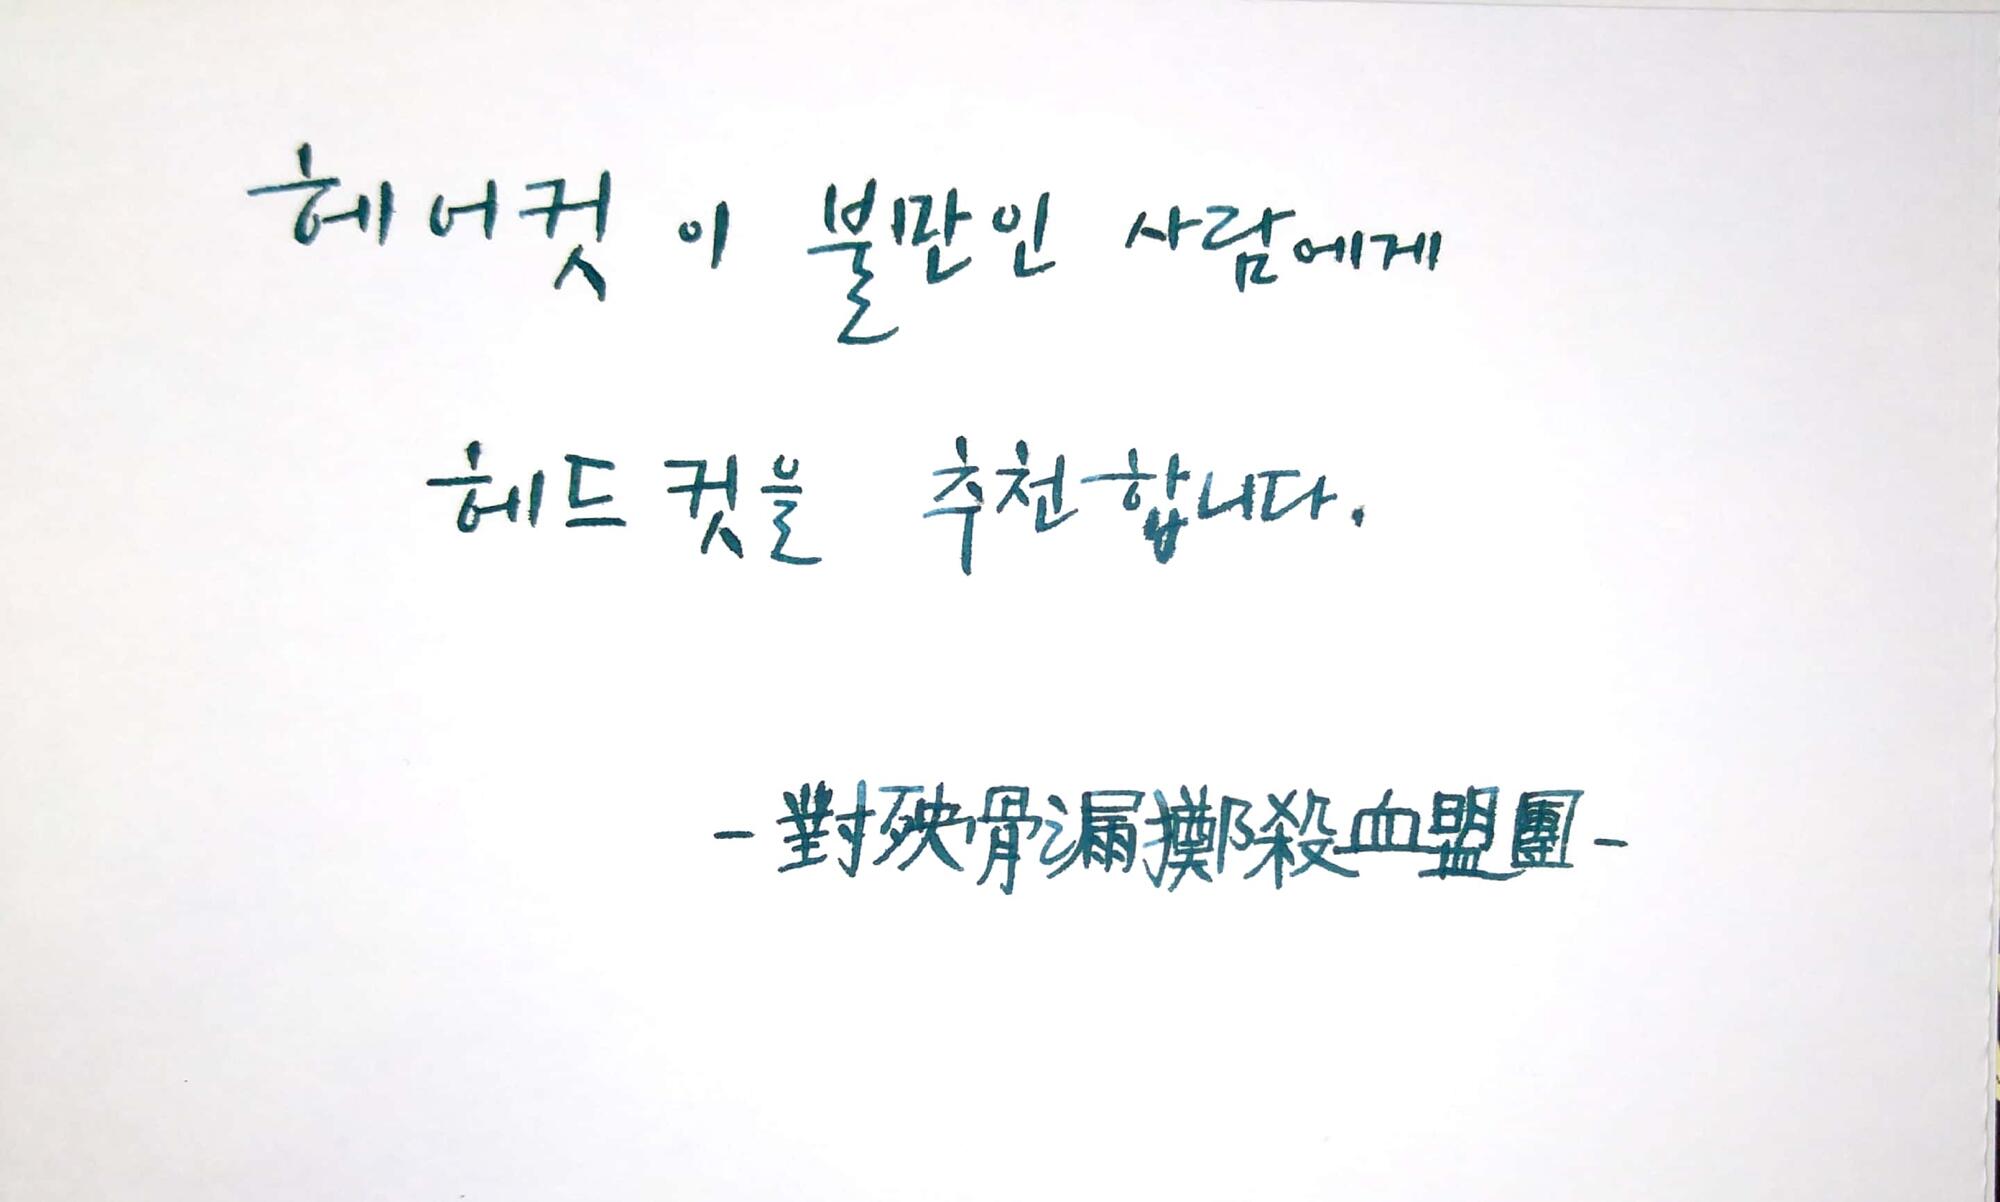 헤어컷이 불만인 사람에게
헤드컷을 추천합니다.
-對殃骨漏擲殺血盟團-